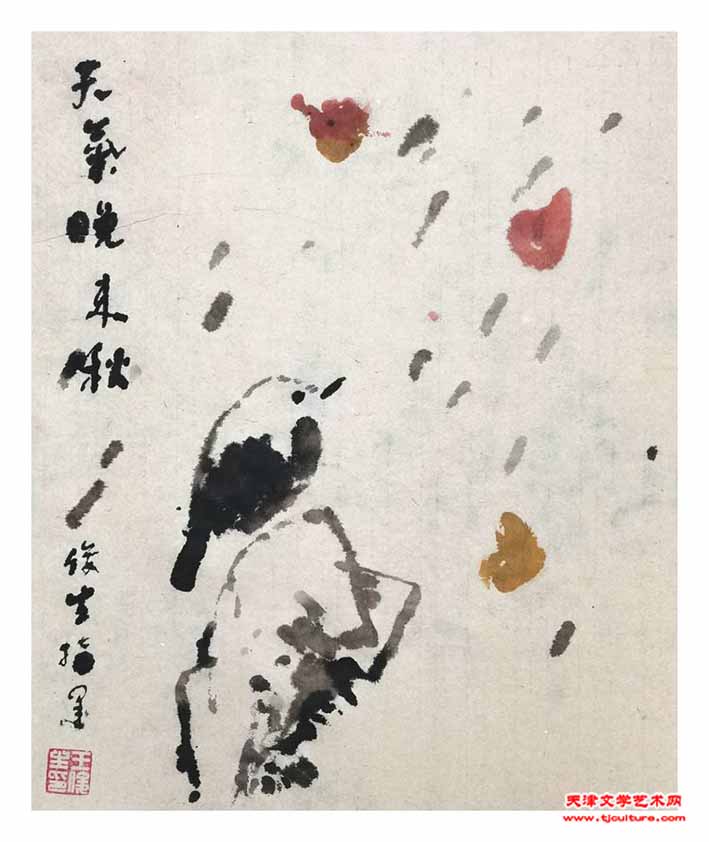 天氣晚来秋
俊生指墨
王俊生印
天津文学艺术网
www.tjculture.com